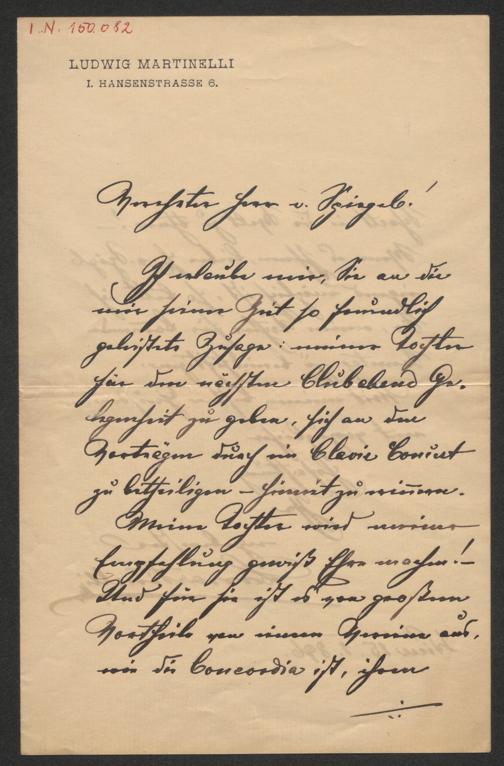 I.N. 150.082
LUDWIG MARTINELLI
I. HANSENSTRASSE 6.
Verehrter Herr v. Spiegel!
Ich erlaube mir, Sie an die
mir seiner Zeit so freundlich
geleistete Zusage: meiner Tochter
für den nächsten Clubabend Ge-
legenheit zu geben, sich an den
Vorträgen durch ein Clavier Concert
zu betheiligen – hiemit zu erinnern.
Meine Tochter wird meiner
Empfehlung gewiß Ehre machen! –
Und für sie ist es von großem
Vortheile von einem Vereine aus,
wie die Concordia ist, ihren